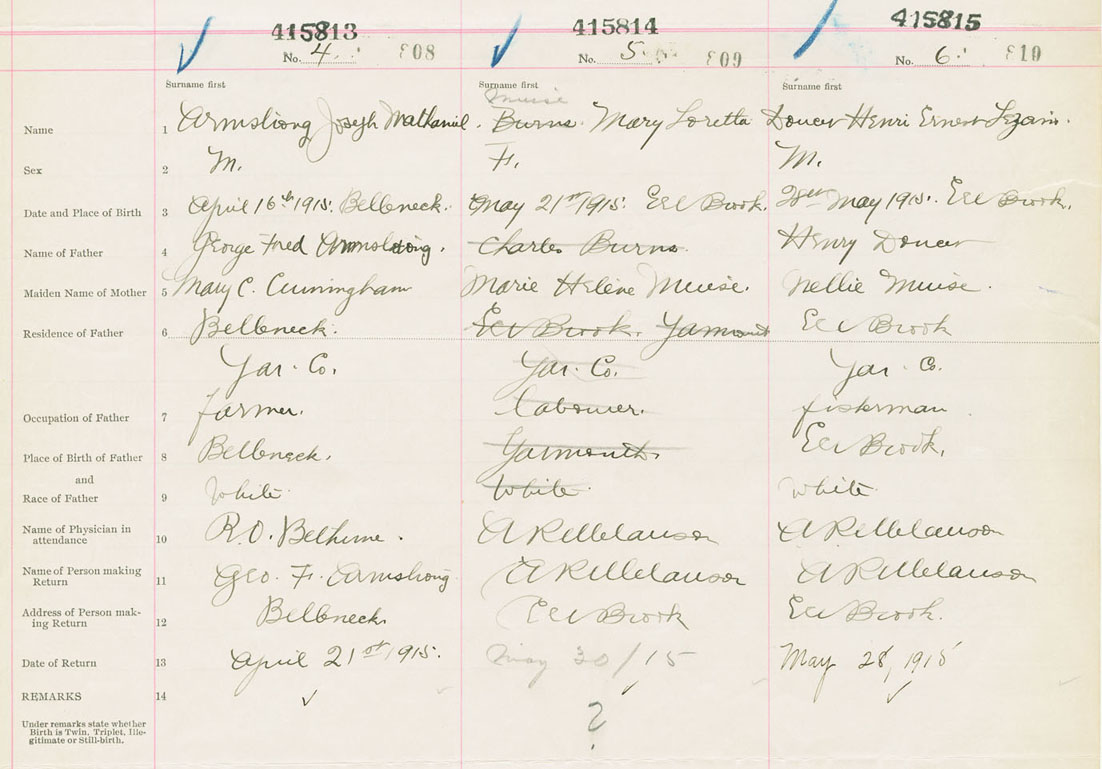 415813 415814 415815
No. 4. 808 No. 5 809 No. 6. 810
Surname first Surname first Surname first
Muise
Name 1 Armstrong Joseph Nathaniel. Burns Mary Loretta Doucet Henri Ernest
Sex 2 M. F. M.
Date and Place of Birth 3 April 16th 1915. Belleneck. May 21st 1915. Eel Brook. 28th May 1915. Eel Brook.
Name of Father 4 George Fred Armstrong. Charles Burns. Henry Doucet
Maiden Name of Mother 5 Mary C. Cunningham Marie Helene Muise. Nellie Muise.
Residence of Father 6 Belleneck. Eel Brook. Yarmouth Eel Brook
Yar. Co. Yar. Co. Yar. Co.
Occupation of Father 7 farmer. labourer. fisherman
Place of Birth of Father 8 Belleneck. Yarmouth. Eel Brook.
and
Race of Father 9 White White White
Name of Physician in
attendance 10 A R Melanson A R Melanson
Name of Person making
Return 11 Geo. F. Armstrong A R Melanson A R Melanson
Address of Person mak-
ing Return 12 Belleneck Eel Brook Eel Brook.
Date of Return 13 April 21st 1915. May 30/15 May 28, 1915
REMARKS 14
?
Under remarks state whether
Birth is Twin, Triplet, Ille-
gitimate or Still-birth.